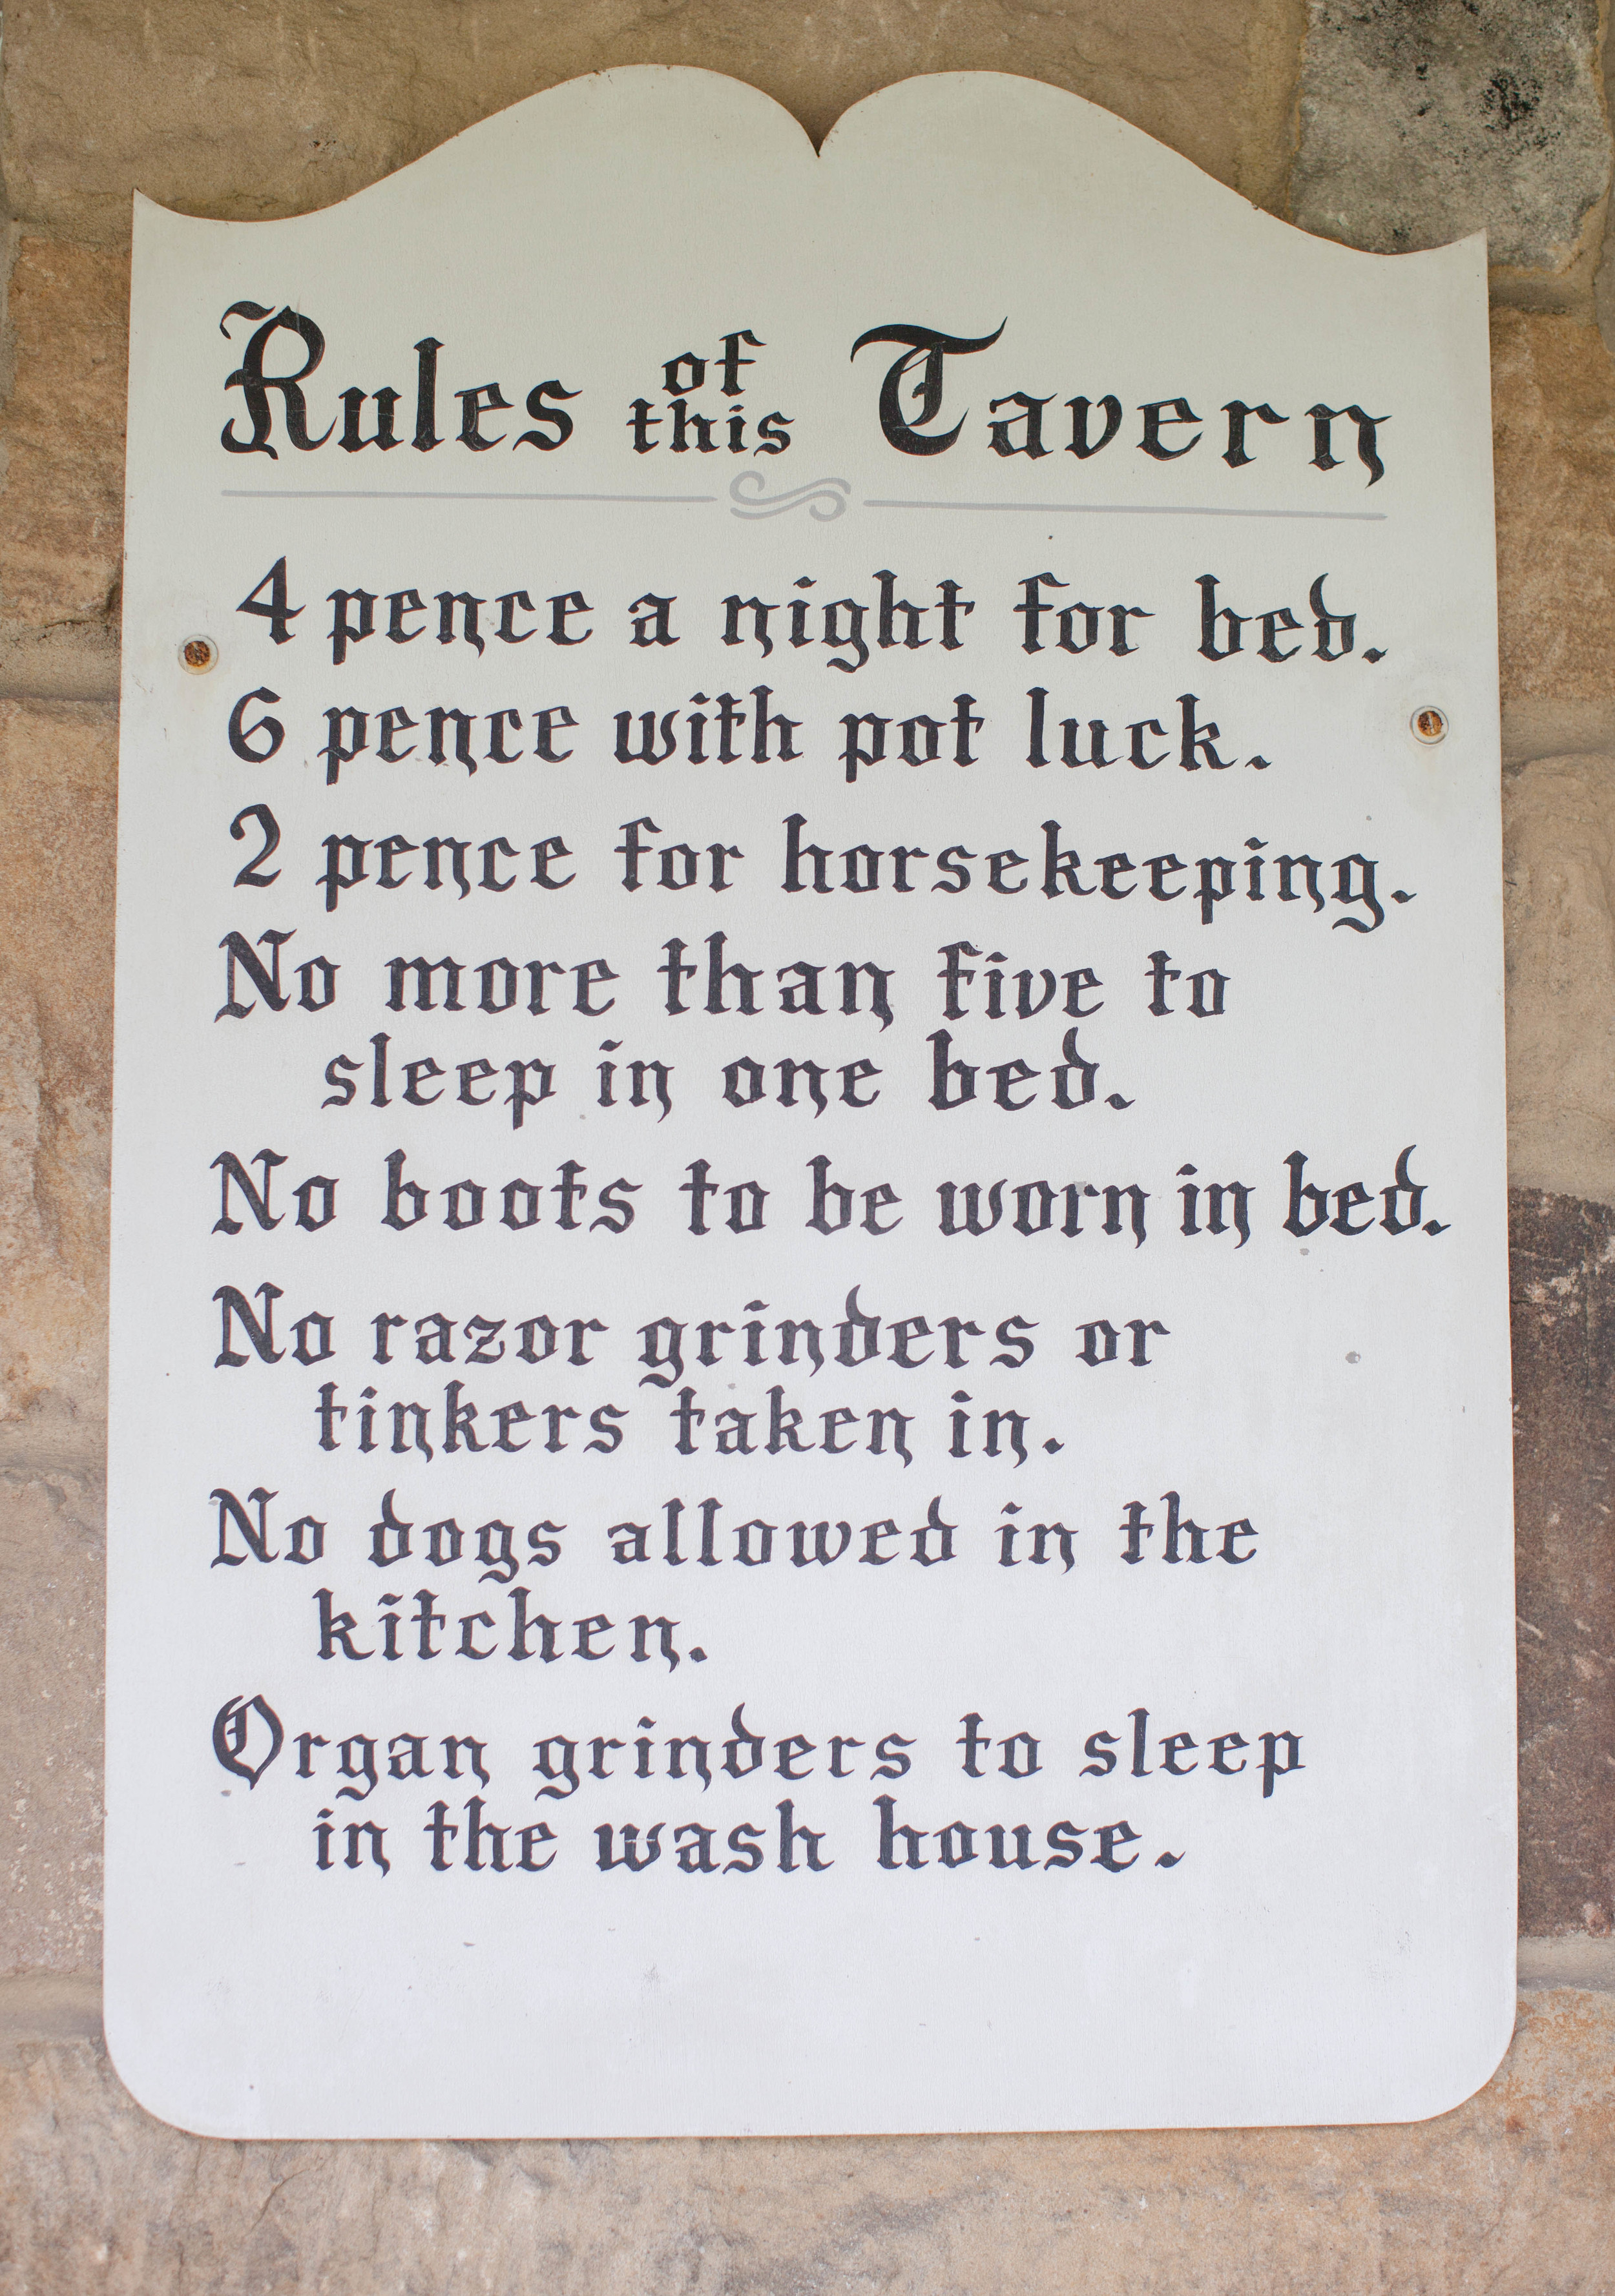 Rules of this Tavern
4 pence a night for bed.
6 pence with pot luck.
2 pence for horsekeeping.
No more than five to
sleep in one bed.
No boots to be worn in bed.
No razor grinders or
tinkers taken in.
No dogs allowed in the
kitchen.
Organ grinders to sleep
in the wash house.